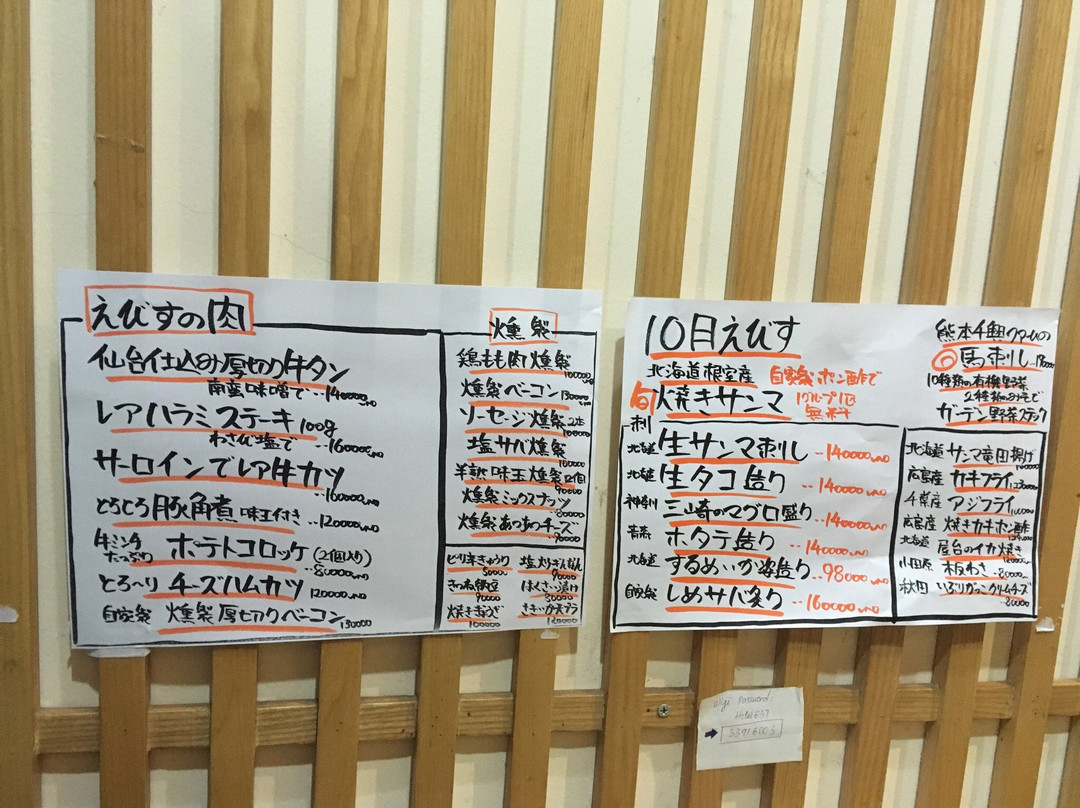 えびすの肉
仙台仕込み厚切り牛タン
南蛮味噌で…140000VND
レアハラミステーキ 100g
わさび塩で…160000VND
サーロインでレア牛カツ
…160000VND
とろとろ豚角煮 味玉付き…120000VND
牛ミンチたっぷり ポテトコロッケ(2個入り)…80000VND
とろ〜り チーズハムカツ 120000VND
自家製 燻製厚切りベーコン 130000
燻製
鶏もも肉燻製
100000VND
燻製ベーコン
130000VND
ソーセージ燻製2本
100000
塩サバ燻製
半熟味玉燻製
90000
燻製ミックスナッツ
80000
燻製あつあつチーズ
90000
ピリ辛きゅうり
50000
塩大リぎんなん
90000
はくさい漬け
焼きぎょうざ
100000
10月えびす
北海道根室産 自家製ポン酢で
旬 焼きサンマ 1グループ1匹
無料
刺
北海道 生サンマ刺し…140000VND
北海道 生タコ造り…140000VND
神奈川 三崎のマグロ盛り…140000VND
青森 ホタテ造り…140000VND
北海道 するめいか姿造り…98000VND
自家製 しめサバ炙り…160000VND
馬刺し
10種類の有機野菜
2種類のみそで
ガーデン野菜スティック
北海道 サンマ竜田揚げ
広島産 カキフライ
千葉産 アジフライ
広島産 焼きカキポン酢
北海道 屋台のイカ焼き
小田原 板わさ…80000
秋田 いぶりがっこクリームチーズ
80000
Password:
Hotel 657